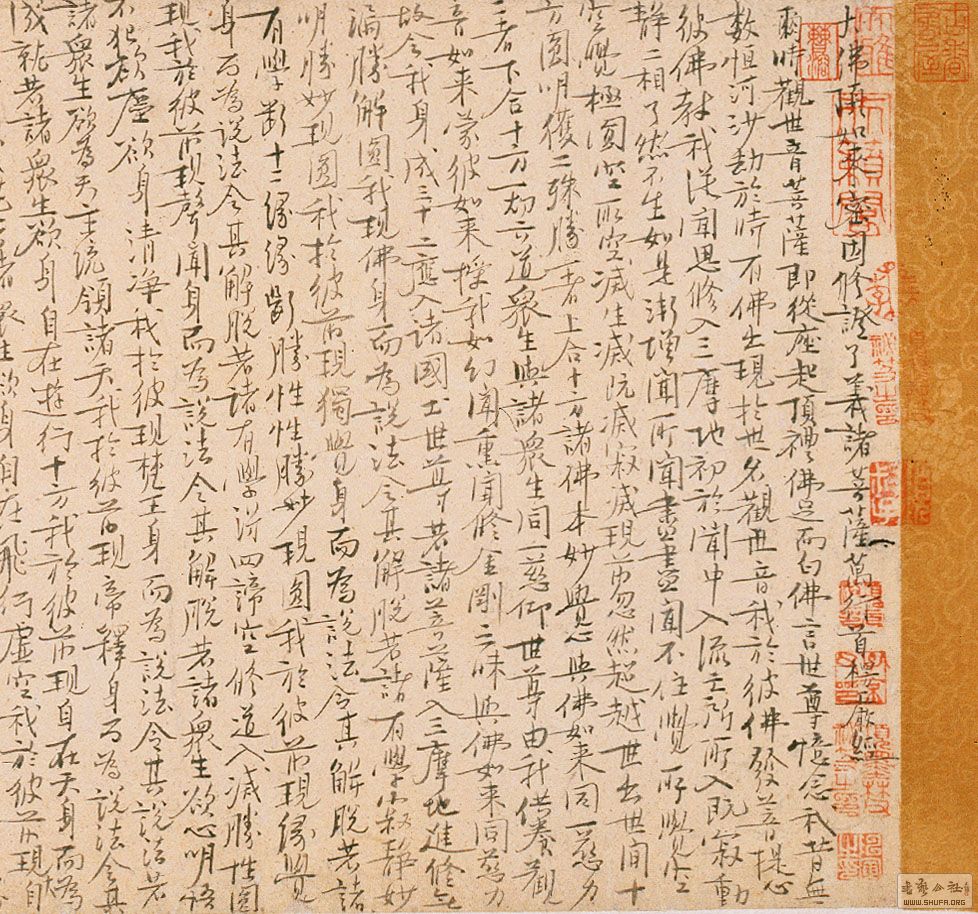 大佛頂如來密因修證了義諸菩薩萬行首楞嚴經
爾時觀世音菩薩即從座起頂禮佛足而白佛言世尊憶念我昔無
數恒河沙劫於時有佛出現於世名觀世音我於彼佛發菩提心
彼佛教我從聞思修入三摩地初於聞中入流亡所所入既寂動
靜二相了然不生如是漸增聞所聞盡盡聞不住覺所覺空
空覺極圓空所空滅生滅既滅寂滅現前忽然超越世出世間十
方圓明獲二殊勝一者上合十方諸佛本妙覺心與佛如來同一慈力
二者下合十方一切六道衆生與諸衆生同一慈仰世尊由我供養觀
音如來蒙彼如來授我如幻聞熏聞修金剛三昧與佛如來同慈力
故令我身成三十二應入諸國土世尊若諸菩薩入三摩地進修無
漏勝解圓我現佛身而為說法令其解脫若諸有學寂靜妙
明勝妙現圓我於彼前現獨覺身而為說法令其解脫若諸
有學斷十二緣緣斷勝性性勝妙現圓我於彼前現緣覺
身而為說法令其解脫若諸有學得四諦空修道入滅勝性圓
現我於彼前現聲聞身而為說法令其解脫若諸衆生欲心明悟
不犯欲塵欲身清淨我於彼現梵王身而為說法令其說法若
諸衆生欲為天主統領諸天我於彼前現帝釋身而為說法令其
成就若諸衆生欲身自在遊行十方我於彼前現自在天身而為
若諸衆生欲身自在飛行虛空我於彼前現自
WWW.SHUFA.ORG